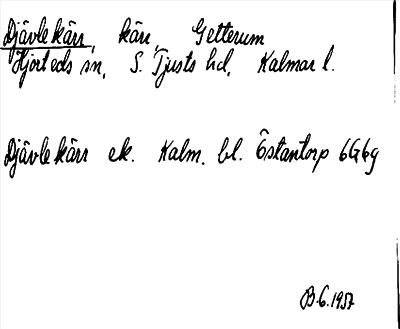 Djävlekärr, kärr, Getterum
Hjorteds sn, S. Tjusts hd, Kalmar l.
Djävlekärr ek. Kalm. bl. Östantorp 6G6g
B.G. 1957